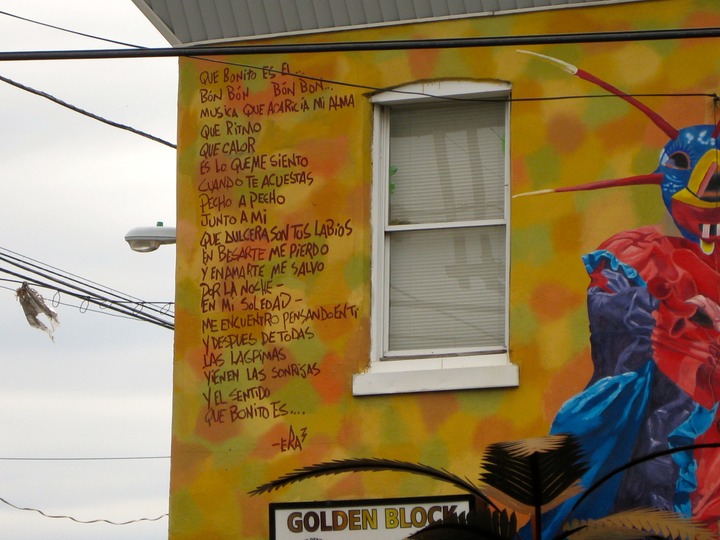 QUE BONITO ES EL...
BÓN BÓN BÓN BON...
MUSICA QUE ACARICIA MI ALMA
QUE RITMO
QUE CALOR
ES LO QUE ME SIENTO
CUANDO TE ACUESTAS
PECHO A PECHO
JUNTO A MI
QUE DULCERA SON TUS LABIOS
EN BESARTE ME PIERDO
Y EN AMARTE ME SALVO
POR LA NOCHE -
EN MI SOLEDAD -
ME ENCUENTRO PENSANDO EN TI
Y DESPUES DE TODAS
LAS LAGRIMAS
VIENEN LAS SONRISAS
Y EL SENTIDO
QUE BONITO ES....
-ERA
GOLDEN BLOCK